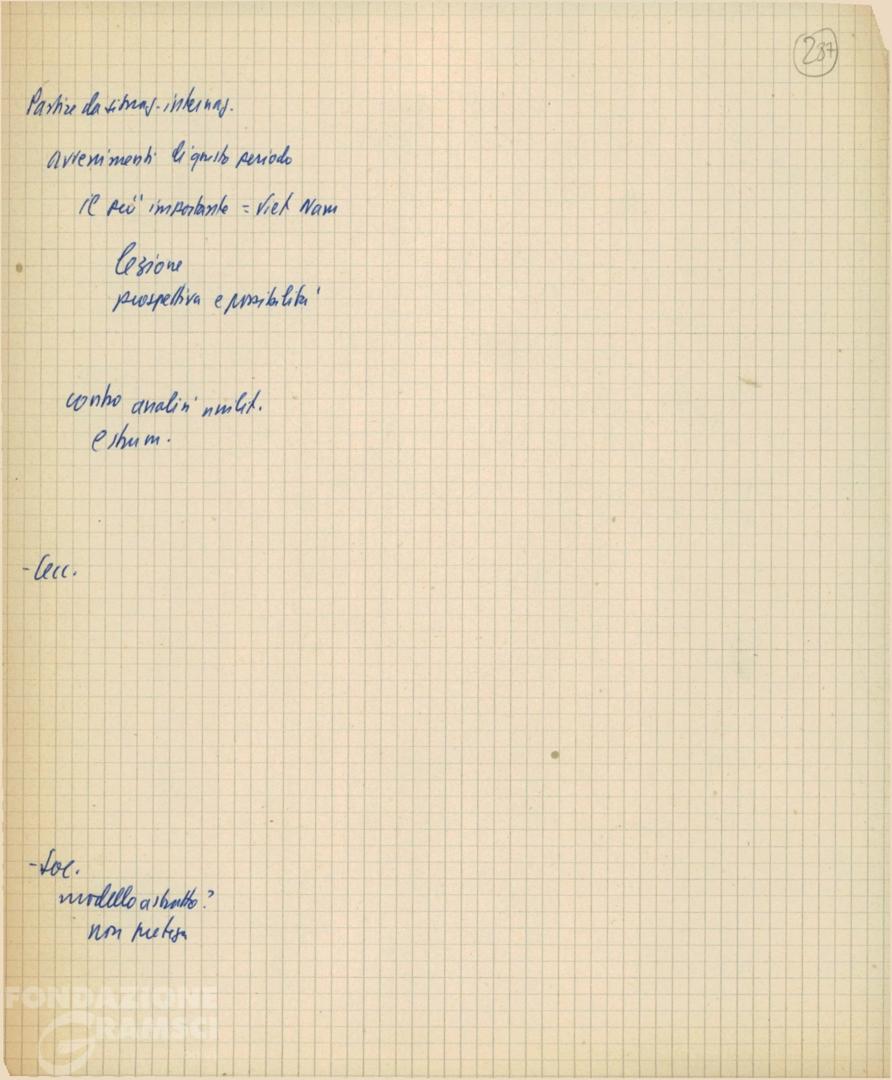 237
Partire da situaz. internaz.
avvenimenti di questo periodo
il più importante = Viet Nam
lezione
prospettiva e possibilità
contro analisi unilit.
e strum.
- Cecc.
- Soc.
modello astratto?
non pretesa
FONDAZIONE
GRAMSCI